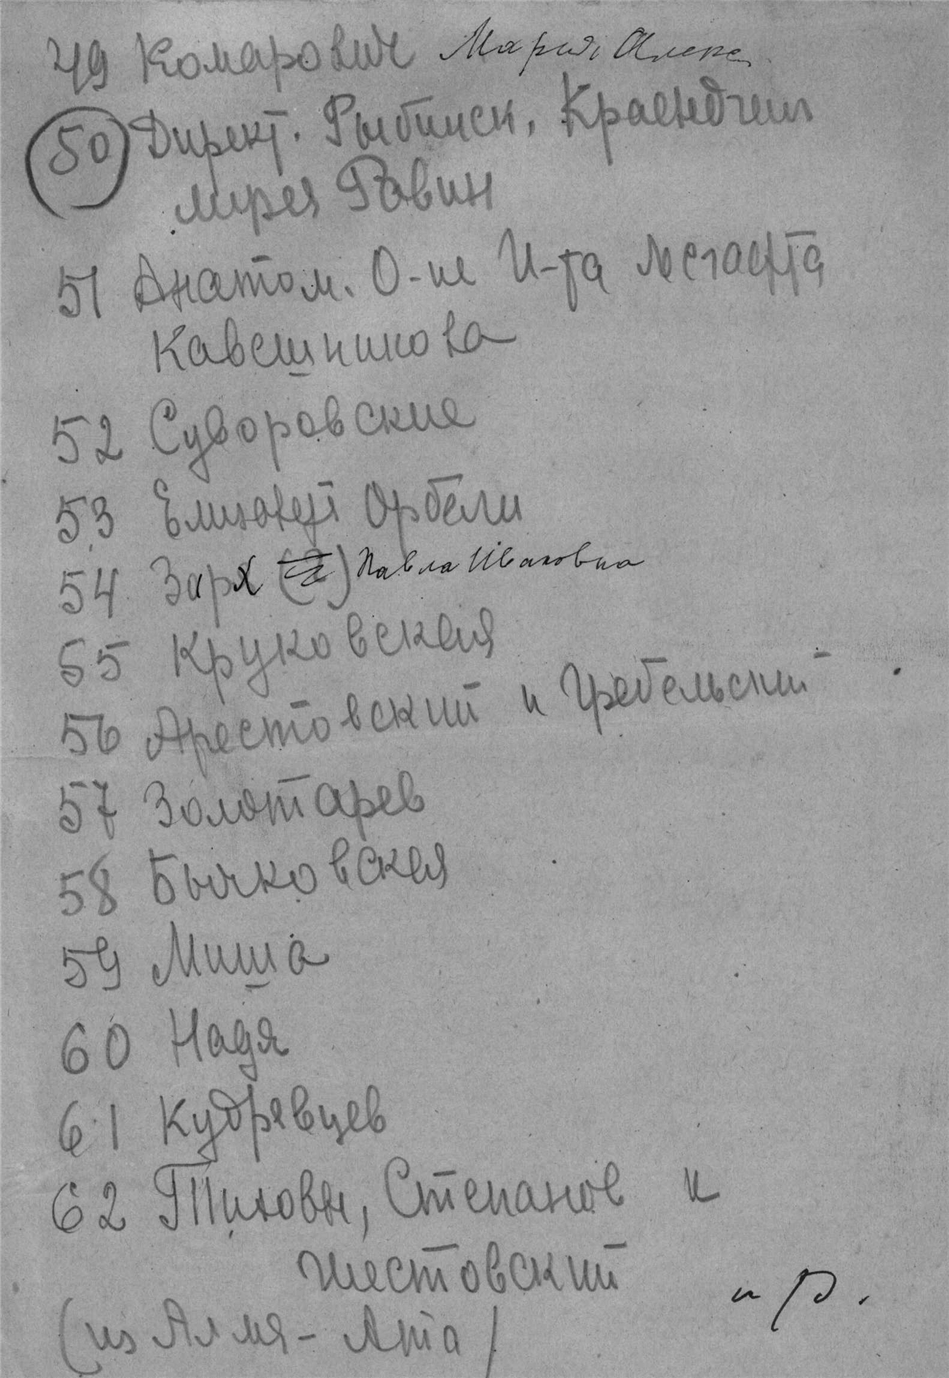 49 Комарович Мария Алекс.
50 Директ. Рыбинск. Краеведчес
музея Равин
51 Анатом. О-ие И-та Лесгафта
Кавешникова
52 Суворовские
53 Елизавет Орбели
54 Зарх Павла Ивановна
55 Круковская
56 Арестовский и Гребельский
57 Золотарев
58 Бычковская
59 Миша
60 Надя
61 Кудрявцев
62 Тиховы, Степанов и
Шестовский
(из Алма-Ата)